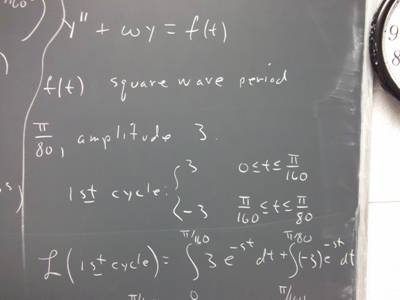 y'' + ωy = f(t)
f(t) square wave period
π/80, amplitude 3.
1st cycle: { 3 0 ≤ t ≤ π/160
-3 π/160 ≤ t ≤ π/80
L(1st cycle) = ∫ π/160 0 3 e^-st dt + ∫ π/80 (-3) e^-st dt